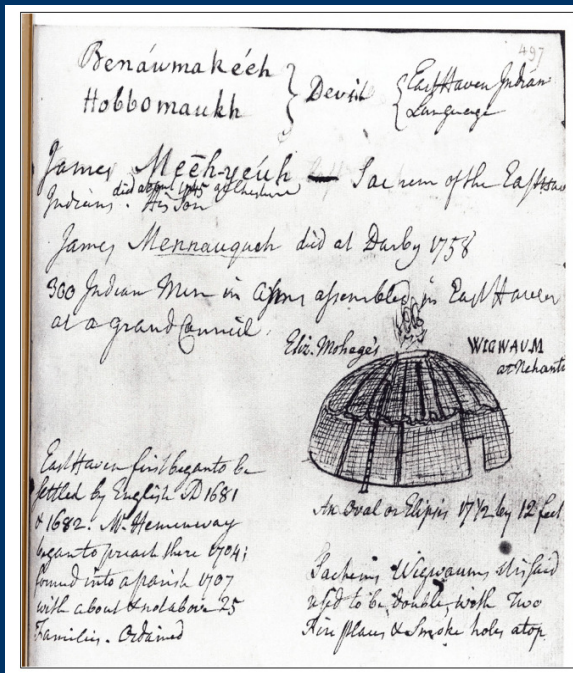 497
Benáwmakéèh
Hobbomaukh } Devil { East Haven Indian
Language
James Mēēh-yeúh — Sachem of the East Hav
died about 1745 at Cheshire
Indians. His Son
James Mennauquah died at Darby 1758
300 Indian Men in Arms assembled in East Haven
at a Grand Council.
Eliz. Mohege's WIGWAUM
at Nehantic
East Haven first began to be
settled by English AD 1681
& 1682. Mr. Hemenway
began to preach there 1704;
formed into a parish 1707
with about & not above 25
Families. Ordained
An Oval or Elipsis 17 1/2 by 12 feet
Sachems Wigwaums it is said
used to be double, with Two
Fire places & Smoke holes atop